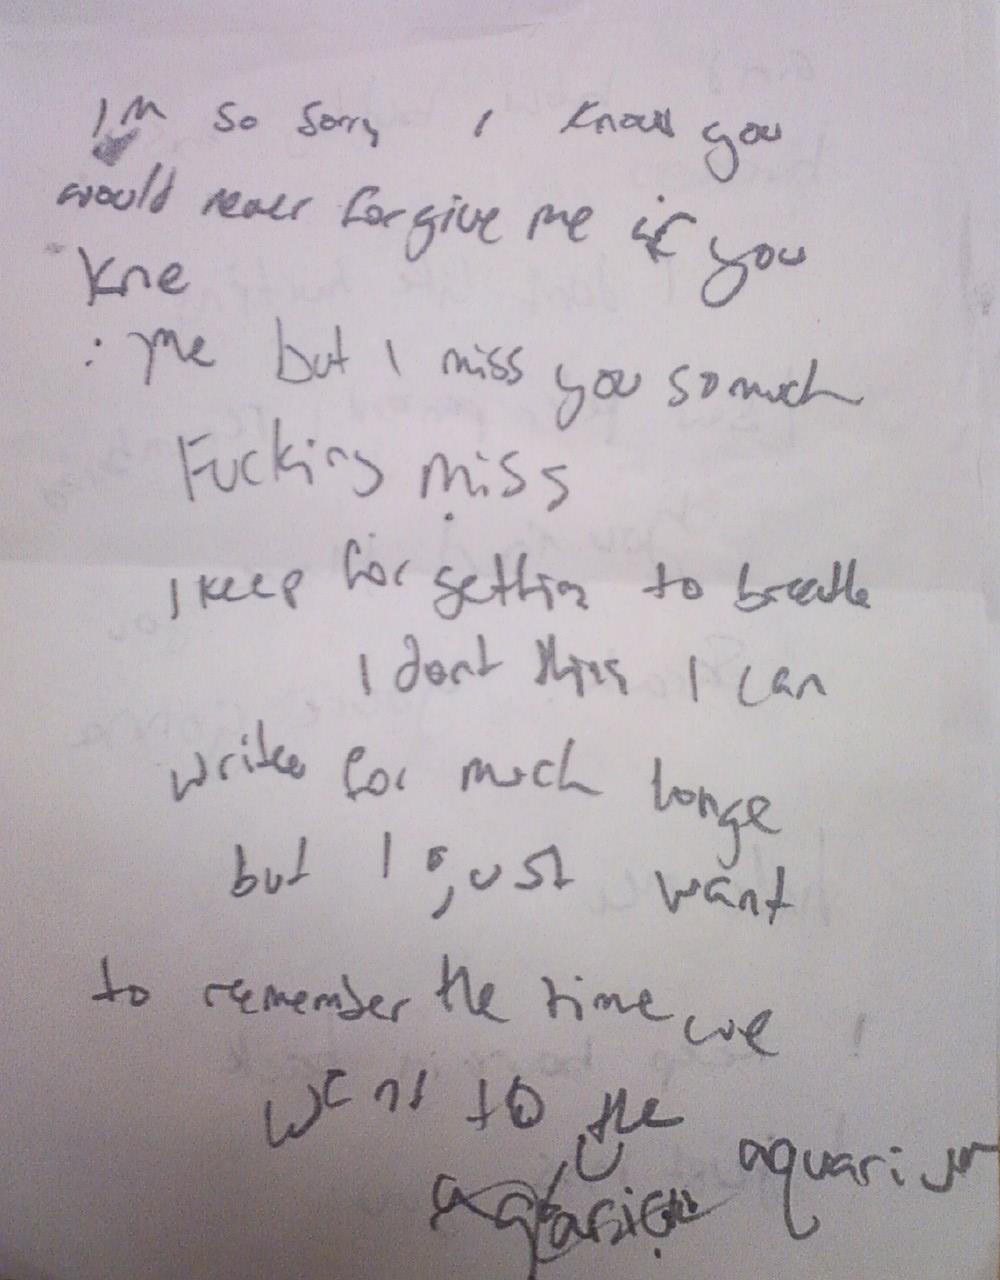 Im so sorry I know you
would never forgive me if you
kne
me but I miss you so much
Fucking miss
I keep forgetting to breathe
I dont think I can
write for much longe
but I just want
to remember the time we
went to the
aquarium